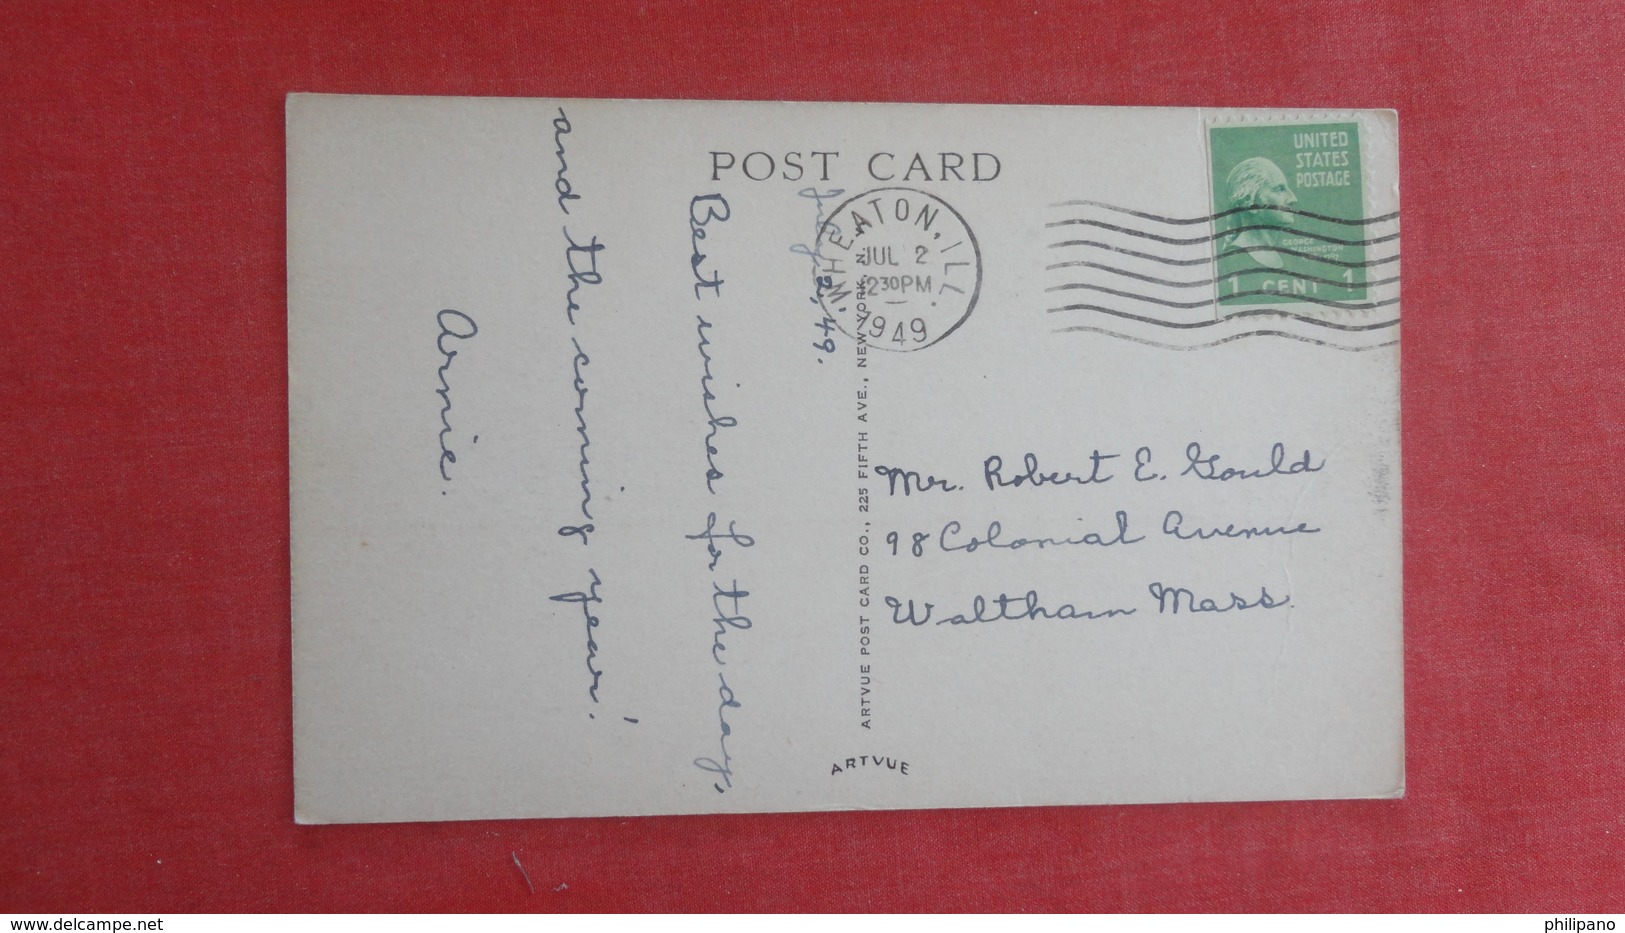 POST CARD
UNITED
STATES
POSTAGE
GEORGE
WASHINGTON
1 CENT 1
WHEATON, ILL.
JUL 2
2 30 PM
1949
July 2, 49.
Best wishes for the day,
and the coming year!
Arnie.
Mr. Robert E. Gould
98 Colonial Avenue
Waltham Mass.
ARTVUE POST CARD CO., 225 FIFTH AVE., NEW YORK, N. Y.
ARTVUE
delcampe.net
philipano